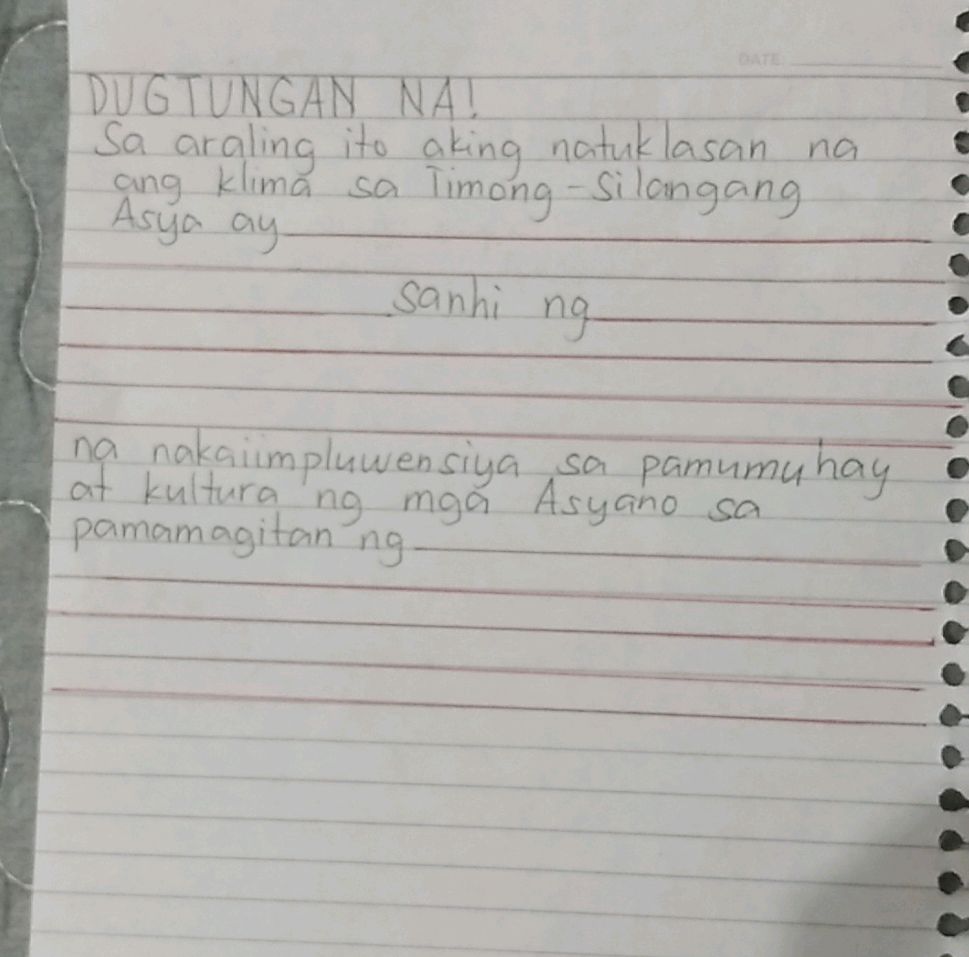 DATE:
DUGTUNGAN NA!
Sa araling ito aking natuklasan na
ang klima sa Timong-Silangang
Asya ay
sanhi ng
na nakaiimpluwensiya sa pamumuhay
at kultura ng mga Asyano sa
pamamagitan ng